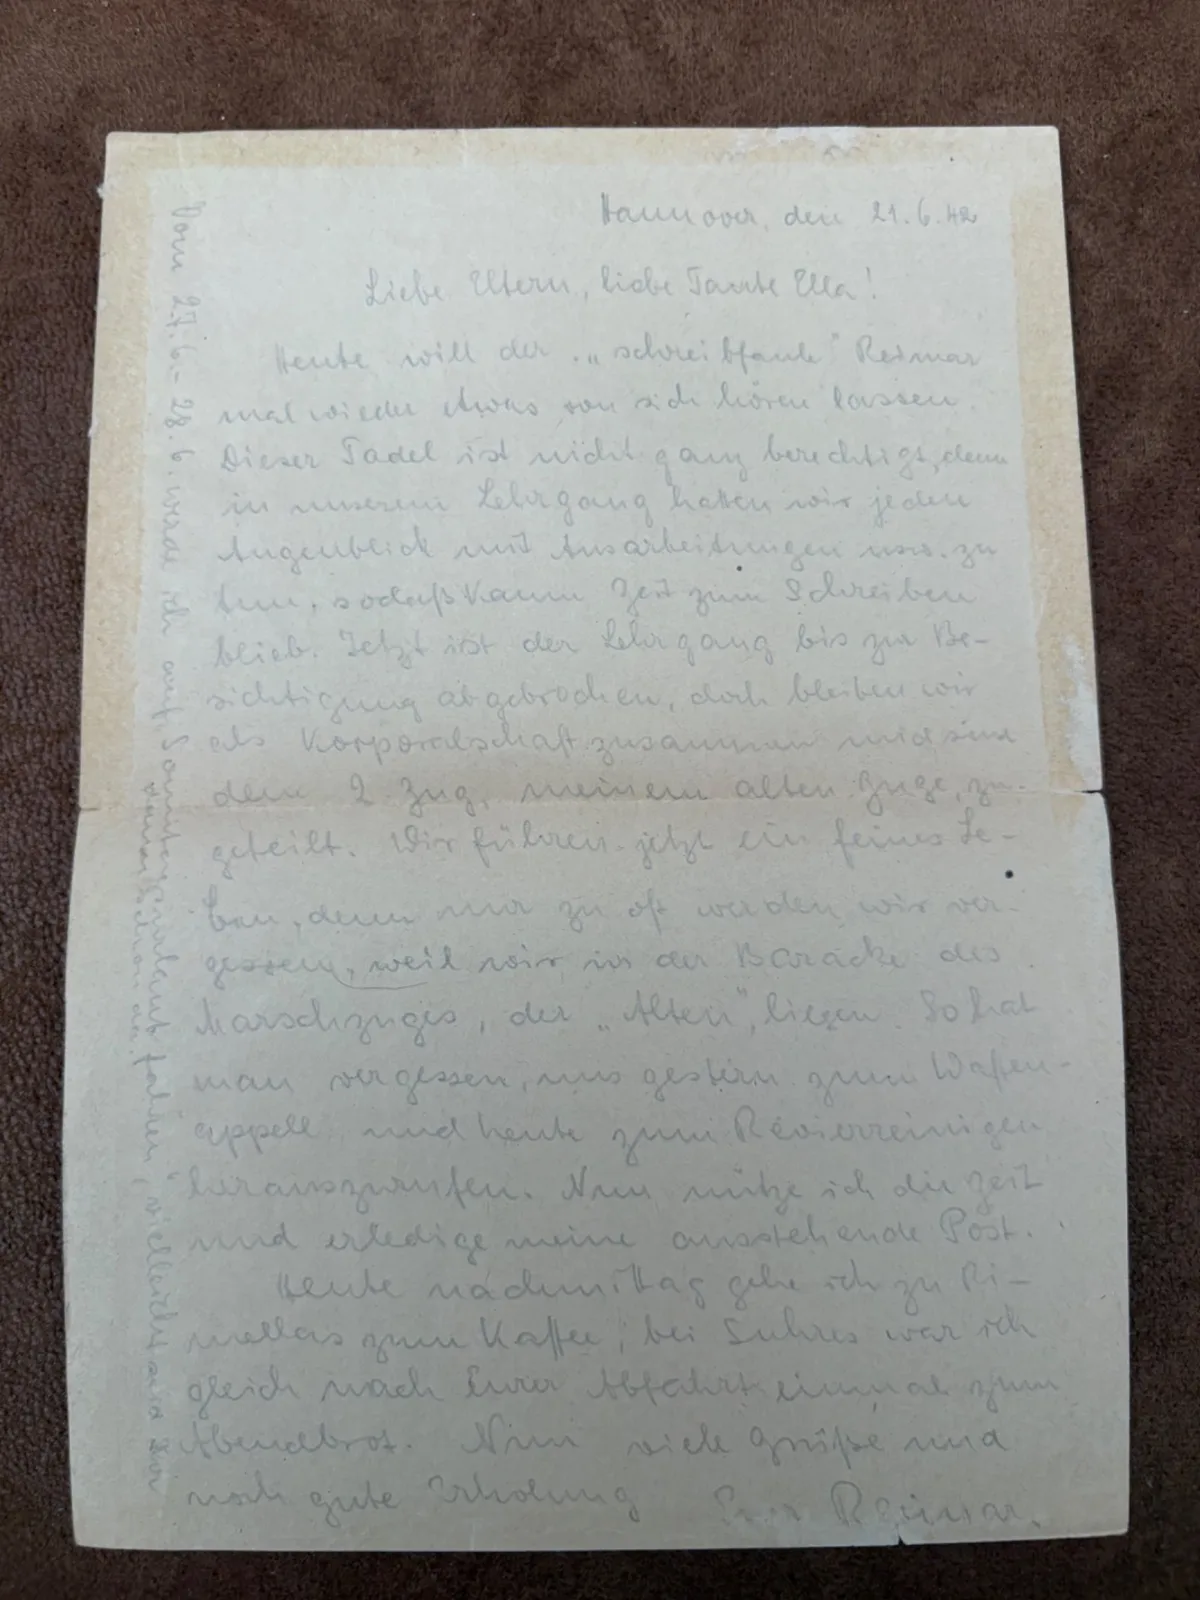 Hannover, den 21.6.42
Liebe Eltern, liebe Tante Ella!
Heute will der „schreibfaule" Reimar
mal wieder etwas von sich hören lassen.
Dieser Tadel ist nicht ganz berechtigt, denn
in unserem Lehrgang hatten wir jeden
Augenblick mit Ausarbeitungen usw. zu
tun, sodaß kaum Zeit zum Schreiben
blieb. Jetzt ist der Lehrgang bis zur Be-
sichtigung abgebrochen, doch bleiben wir
als Korporalschaft zusammen und sind
dem 2 Zug, meinem alten Zuge, zu-
geteilt. Wir führen jetzt ein feines Le-
ben, denn nur zu oft werden wir ver-
gessen, weil wir in der Baracke des
Marschzuges, der „Alten", liegen. So hat
man vergessen, uns gestern zum Waffen-
appell und heute zum Revierreinigen
herauszurufen. Nun nütze ich die Zeit
und erledige meine ausstehende Post.
Heute nachmittag gehe ich zu
zum Kaffee, bei Suhres war ich
gleich nach Eurer Abfahrt einmal zum
Abendbrot. Nun viele Grüße und
noch gute Erholung Euer Reimar.
Vom 27.6.-28.6. werde ich auf Sonntagsurlaub fahren, vielleicht